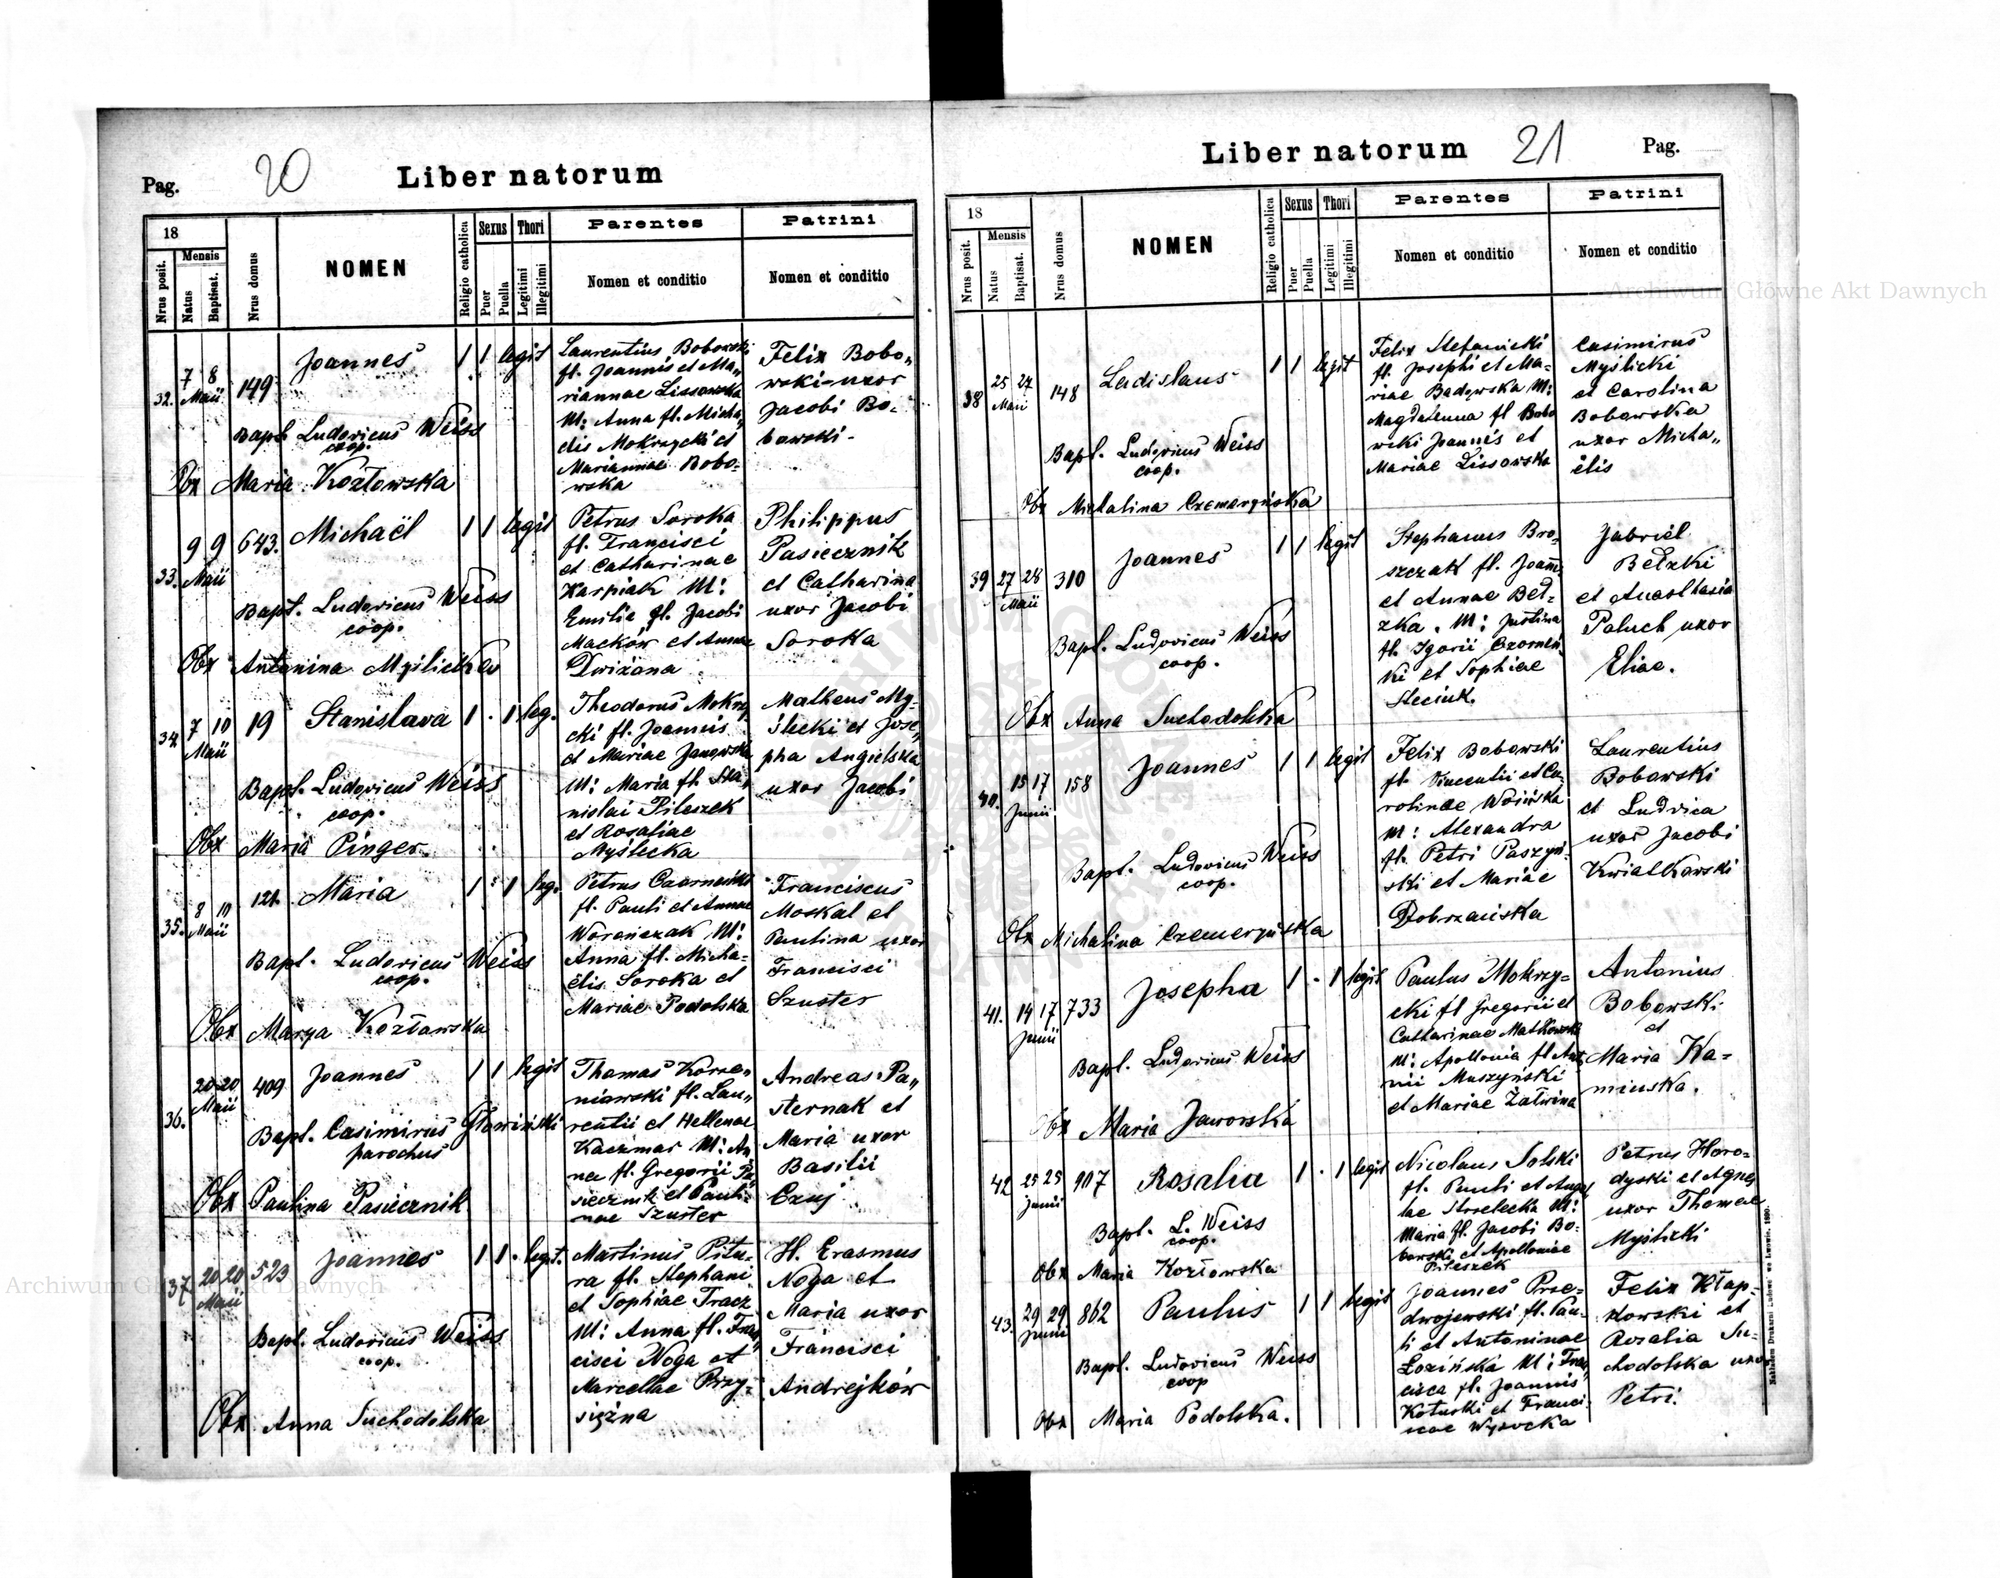 Pag. 20 Liber natorum
18
Mensis
Nrus posit.
Natus
Baptisat.
Nrus domus
NOMEN
Religio catholica
Sexus
Puer
Puella
Thori
Legitimi
Illegitimi
Parentes
Nomen et conditio
Patrini
Nomen et conditio
32. 7 8 Maii 149 Joannes 1 1 legit
Bapt. Ludovicus Weiss
coop.
Obx Maria Kozłowska
Laurentius Bobowski
fl. Joannis et Ma„
riannae Lissowska
M: Anna fl. Micha„
elis Mokrzycki et
Mariannae Bobo-
wska
Felix Bobo„
wski - uxor
Jacobi Bo-
bowski -
33. 9 9 Maii 643. Michaël 1 1 legit
Bapt. Ludovicus Weiss
coop.
Obx Antonina Myślicka
Petrus Soroka
fl. Francisci
et Catharinae
Karpiak M:
Emilia fl. Jacobi
Maćków et Annae
Dwiżana
Philippus
Pasiecznik
et Catharina
uxor Jacobi
Soroka
34. 7 10 Maii 19 Stanislava 1 . 1 leg.
Bapt. Ludovicus Weiss
coop.
Obx Maria Pinger.
Theodorus Mokrzy
cki fl. Joannis
et Mariae Janowska
M: Maria fl. Sta„
nislai Pileszek
et Rosaliae
Myślecka
Matheus My-
ślecki et Jose„
pha Angielska
uxor Jacobi
35. 8 10 Maii 121. Maria 1 . 1 leg.
Bapt. Ludovicus Weiss
coop.
Obx Marya Kozłowska
Petrus Czarnecki
fl. Pauli et Annae
Worończak M:
Anna fl. Micha-
ëlis Soroka et
Mariae Podolska
Franciscus
Moskal et
Paulina uxor
Francisci
Szuster
36. 20 20 Maii 409 Joannes 1 1 legit
Bapt. Casimirus Głowiński
parochus
Obx Paulina Pasiecznik
Thomas Korze„
niowski fl. Lau„
rentii et Hellenae
Kaczmar M: An
na fl. Gregorii Pa
siecznik et Pauli-
nae Szuster
Andreas Pa„
sternak et
Maria uxor
Basilii
Czuj
37 20 20 Maii 523 Joannes 1 1 . legit.
Bapt. Ludovicus Weiss
coop.
Obx Anna Suchodolska
Martinus Pitu-
ra fl. Stephani
et Sophiae Tracz
M: Anna fl. Fran
cisci Noga et
Marcellae Przy-
siężna
H. Erasmus
Noga et
Maria uxor
Francisci
Andrejków
Liber natorum 21 Pag.
18
Mensis
Nrus posit.
Natus
Baptisat.
Nrus domus
NOMEN
Religio catholica
Sexus
Puer
Puella
Thori
Legitimi
Illegitimi
Parentes
Nomen et conditio
Patrini
Nomen et conditio
38 25 27 Maii 148 Ladislaus 1 1 legit
Bapt. Ludovicus Weiss
coop.
Obx Michalina Czemeryńska
Felix Stefanicki
fl. Josephi et Ma-
riae Badowska M:
Magdalenna fl Bobo
wski Joannis et
Mariae Lissowska
Casimirus
Myślicki
et Carolina
Bobowska
uxor Micha„
ëlis
39 27 28 Maii 310 Joannes 1 1 legit
Bapt. Ludovicus Weiss
coop.
Obx Anna Suchodolska
Stephanus Bro-
szczak fl. Joann.
et Annae Beł-
zka. M: Justina
fl. Igorii
ki et Sophiae
Steciuk.
Gabriël
Bełzki
et Anasthasia
Paluch uxor
Eliae.
40. 15 17 Junii 158 Joannes 1 1 legit
Bapt. Ludovicus Weiss
coop.
Obx Michalina Czemeryńska
Felix Bobowski
fl. Vincentii et Ca-
rolinae Woińska
M: Alexandra
fl. Petri Paszyń-
ski et Mariae
Dobrzańska
Laurentius
Bobowski
et Ludvica
uxor Jacobi
Kwiatkowski
41. 14 17 Junii 733 Josepha 1 - 1 legit
Bapt. Ludovicus Weiss
Obx Maria Jaworska
Paulus Mokrzy-
cki fl Gregorii et
Catharinae Małkowska
M: Apollonia fl Anto
nii Muszyński
et Mariae Załwina
Antonius
Bobowski
et
Maria Ka-
minska.
42 25 25 Junii 907 Rosalia 1 . 1 legit
Bapt. L. Weiss
coop.
Obx Maria Kozłowska
Nicolaus Solski
fl. Pauli et Ange
lae Strzelecka M:
Maria fl. Jacobi Bo-
bowski et Apolloniae
Pileszek
Petrus Horo-
dyski et Agnes
uxor Thomae
Myślicki
43. 29 29 Junii 862 Paulus 1 1 legit
Bapt. Ludovicus Weiss
coop
Obx Maria Podolska.
Joannes Prze-
dwojewski fl. Pau-
li et Antoninae
Łozińska M: Fran
cisca fl. Joannis
Koturki et Franci-
scae Wysocka
Felix Kłap-
kowski et
Rozalia Su-
chodolska uxor
Petri.
Nakładem Drukarni Ludowej we Lwowie. 1890.
Archiwum Główne Akt Dawnych
Archiwum Główne Akt Dawnych